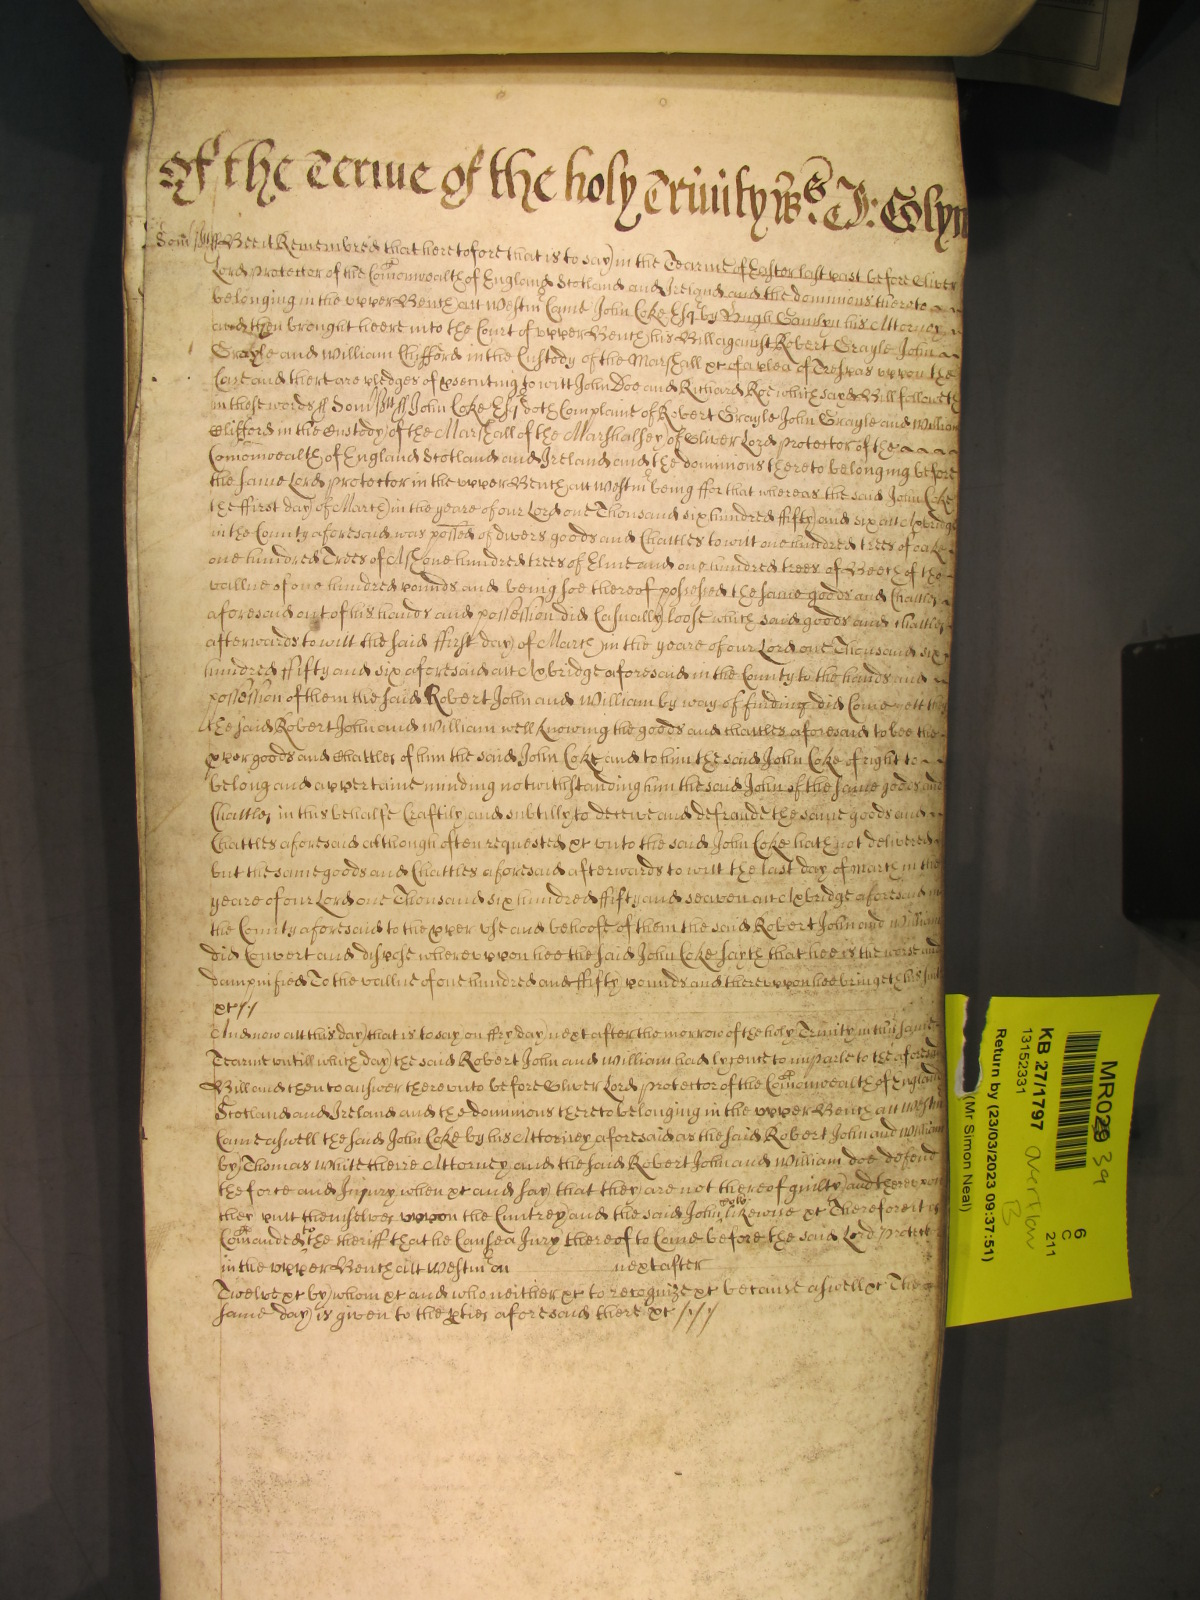 Of the Terme of the holy Trinity Ro: Glyn
Som'stt ss Bee it Remembred that heretofore that is to say in the Tearme of Easter last past before Oliver
Lord Protector of the Comonwealth of England Scotland and Ireland and the dominions thereto
belonging in the upper Bench att Westm' Came John Coke Esqr by Hugh his Attorney
and then brought heere into the Court of upper Bench his Bill against Robert Grayle John
Grayle and William Clifford in the Custody of the Marshall &c of a plea of Tresspas uppon the
Case and there are pledges of prosecuting to witt John Doe and Richard Roe which sayd Bill followeth
in these words ss Som'stt ss John Coke Esqr doth Complaine of Robert Grayle John Grayle and William
Clifford in the Custody of the Marshall of the Marshalsey of Oliver Lord Protector of the
Comonwealth of England Scotland and Ireland and the dominions thereto belonging before
the same Lord Protector in the upper Bench att Westm' being ffor that whereas the said John Coke
the ffirst day of March in the yeare of our Lord one Thousand six hundred ffifty and six att Axbridge
in the County aforesaid was possed of divers goods and Chattles to witt one hundred trees of oake
one hundred Trees of Ash one hundred trees of Elme and one hundred trees of Beech of the
vallue of one hundred pounds and being soe thereof possessed the same goods and Chattles
aforesaid out of his hands and possession did Casually loose which said goods and chattles
afterwards to witt the said ffirst day of March in the yeare of our Lord one Thousand six
hundred ffifty and six aforesaid att Axbridge aforesaid in the County to the hands and
possession of them the said Robert John and William by way of finding did Come yett they
the said Robert John and William well knowing the goods and chattles aforesaid to bee the
pper goods and Chattles of him the said John Coke and to him the said John Coke of right to
belong and appertaine minding notwithstanding him the said John of the same goods and
Chattles in this behalfe Craftily and subtilly to deceive and defraude the same goods and
Chattles aforesaid although often requested &c unto the said John Coke hath not delivered
but the same goods and Chattles aforesaid afterwards to witt the last day of March in the
yeare of our Lord one Thousand six hundred ffifty and seaven att Axbridge aforesaid in
the County aforesaid to the pper use and behoofe of them the said Robert John and William
did Convert and dispose whereuppon hee the said John Coke sayth that hee is the worse and
dampnified To the vallue of one hundred and ffifty pounds and thereuppon hee bringeth his suit
&c //
And now att this day that is to say on ffryday next after the morrow of the holy Trinity in this same
Tearme untill which day the said Robert John and William had lycence to imparle to the aforesaid
Bill and then to answer thereunto before Oliver Lord Protector of the Comonwealth of England
Scotland and Ireland and the dominions thereto belonging in the upper Bench att Westm'
Came aswell the said John Coke by his Attorney aforesaid as the said Robert John and William
by Thomas White theire Attorney and the said Robert John and William doe defend
the force and Injury when &c and say that they are not thereof guilty and thereuppon
they putt themselves uppon the Cuntrey and the said John Coke likewise &c Therefore it is
Comanded to the sheriff that he Cause a Jury thereof to Come before the said Lord Protector
in the upper Bench att Westm' on next after
Twelve &c by whom &c and who neither &c to recognize &c because aswell &c The
same day is given to the pties aforesaid there &c ////
MR029 39
KB 27/1797 overflow B
13152331
6
C
211
(Mr Simon Neal)
Return by (23/03/2023 09:37:51)